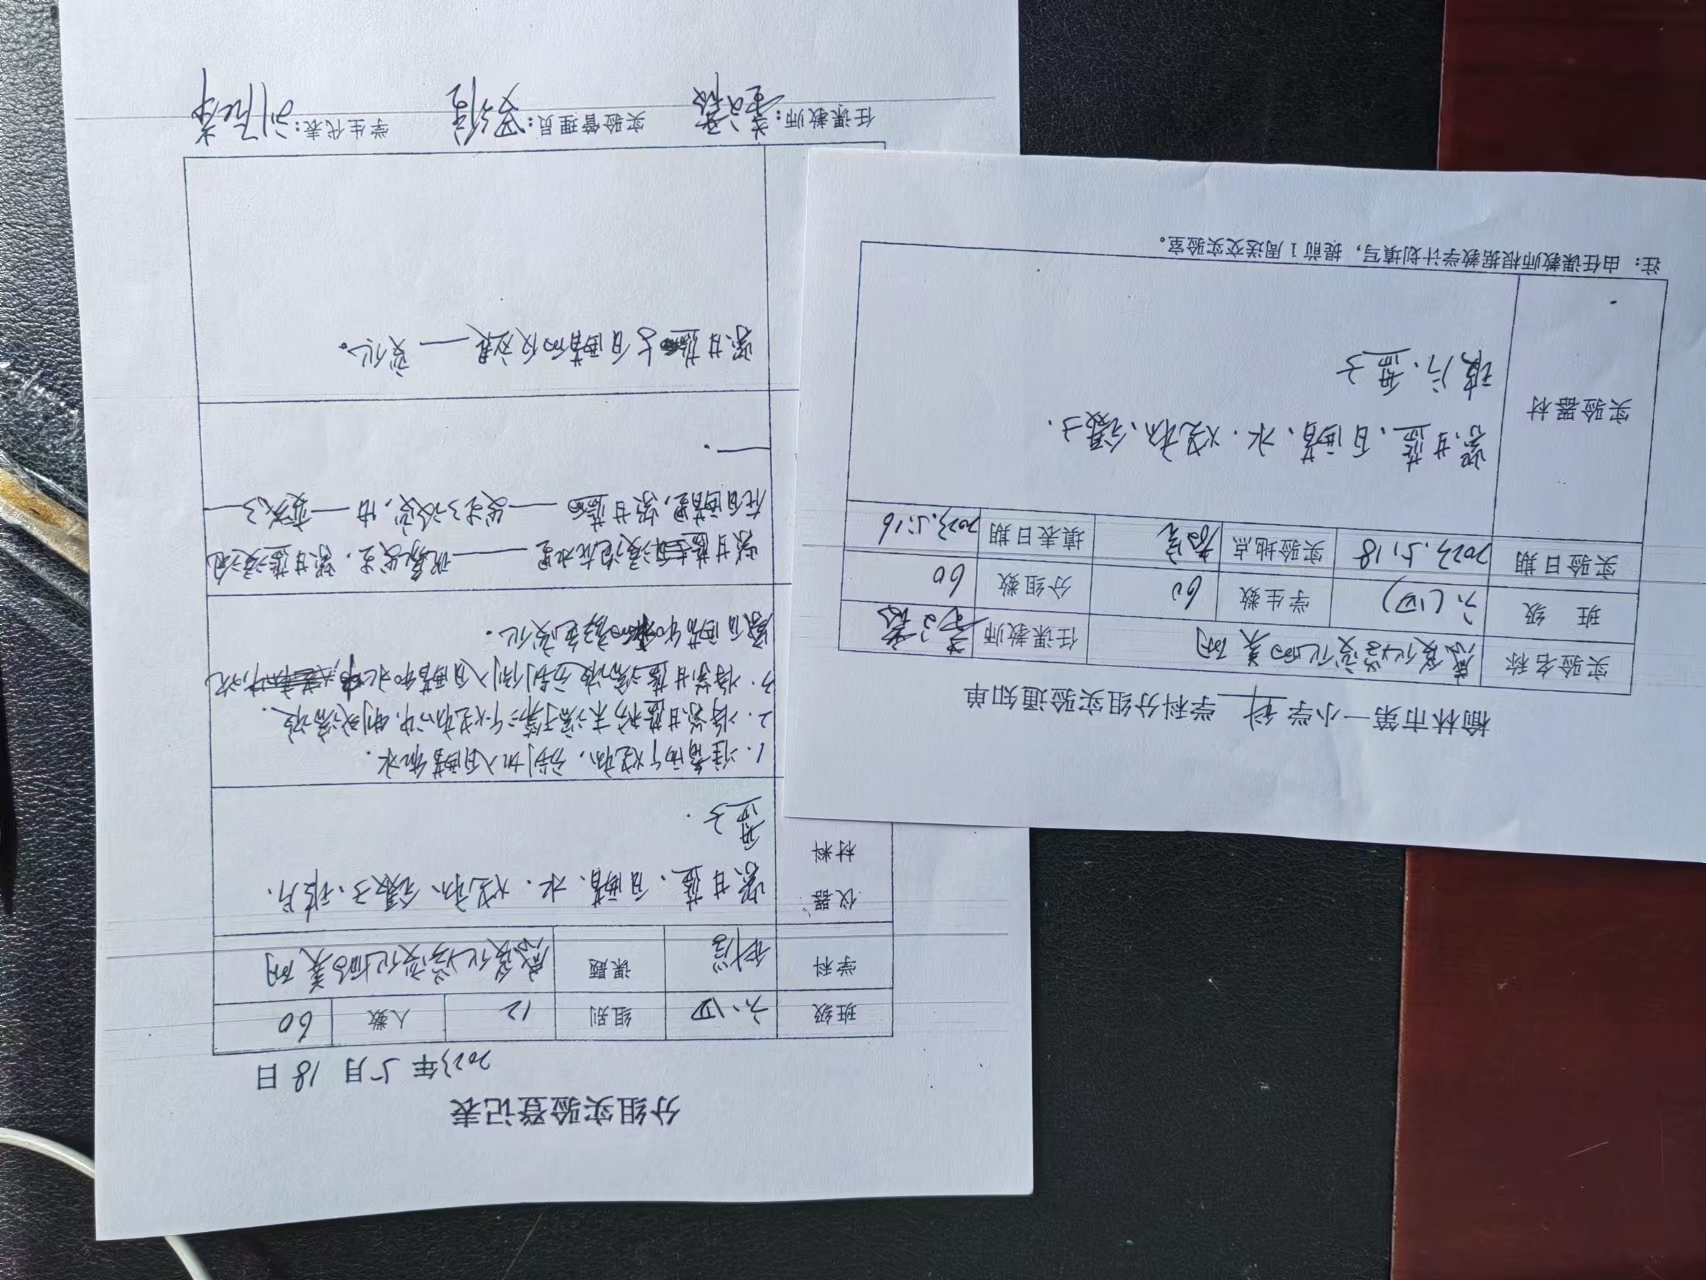 榆林市第一小学 科 学科分组实验通知单
实验名称 感受化学变化的美丽 任课教师
班 级 六(四) 学生数 60 分组数 60
实验日期 2023.5.18 实验地点 教室 填表日期 2023.5.16
实验器材 紫甘蓝、白醋、水、烧杯、镊子、
玻片、盘子
注：由任课教师根据教学计划填写，提前1周送交实验室。
分组实验登记表
2023年5月18日
班级 六、四 组别 12 人数 60
学科 科学 课题 感受化学变化的美丽
仪器
材料
紫甘蓝、白醋、水、烧杯、镊子、玻片、
盘子.
1.准备两个烧杯，分别加入白醋和水.
2.将紫甘蓝粉末溶于第三个烧杯中，制成溶液.
3.将紫甘蓝溶液分别倒入白醋和水中，观
察白醋和水的颜色变化.
紫甘蓝浸泡在水里——现象发生，紫甘蓝浸泡
在白醋里，紫甘蓝——发生了改变，由——变成了——
——.
紫甘蓝与白醋的反应是——变化。
任课教师： 实验管理员： 学生代表：